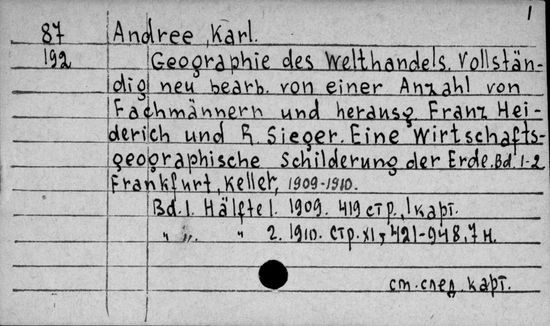 1
87 Andree, Karl.
192 Geographie des Welthandels. Vollstän-
dig neu bearb. von einer Anzahl von
Fachmännern und herausg Franz Hei-
derich und R. Sieger. Eine Wirtschafts-
geographische Schilderung der Erde. Bd. 1-2
Frankfurt, Keller, 1909-1910.
Bd. 1. Hälfte 1. 1909. 419 стр., 1 карт.
" " " 2. 1910. стр. XI, 421-948, 7 н.
ст. след. карт.